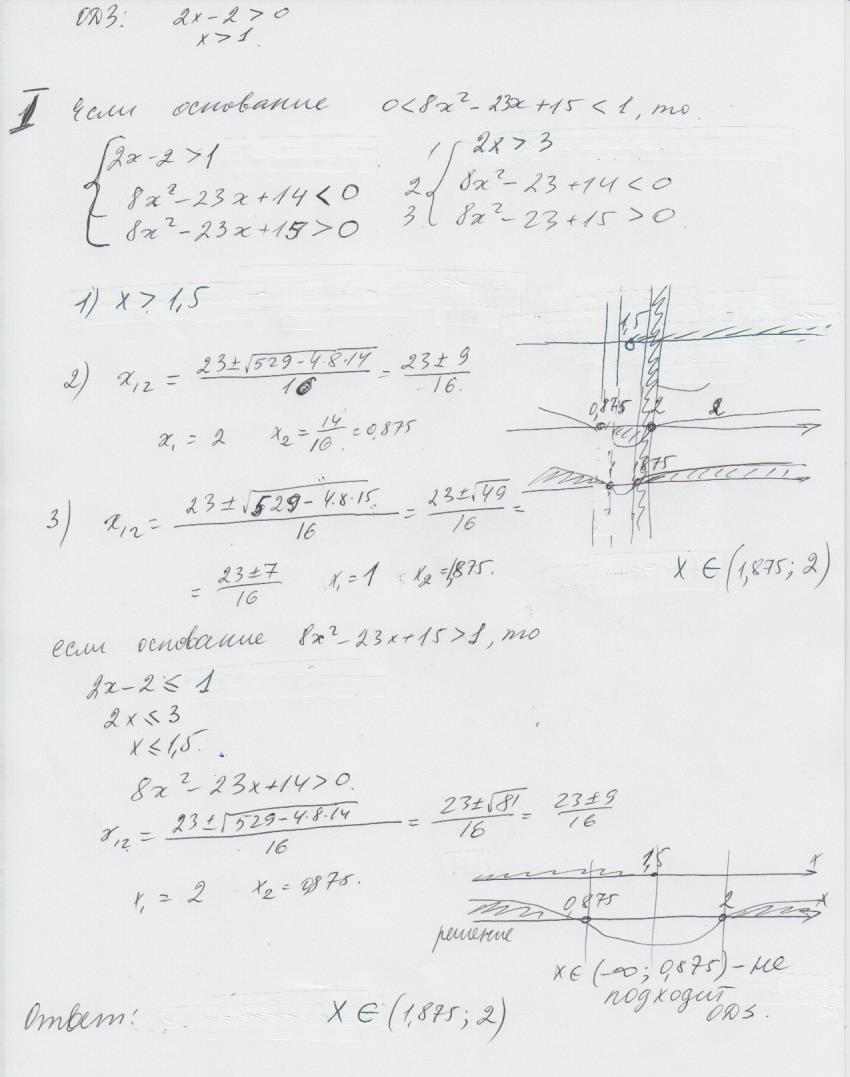 ОДЗ: 2x-2>0
x>1.
I Если основание 0<8x²-23x+15<1, то
{ 2x-2>1
8x²-23x+14<0
8x²-23x+15>0
1 { 2x>3
2 8x²-23+14<0
3 8x²-23+15>0.
1) x>1,5
2) x₁₂ = (23±√(529-4·8·14))/16 = (23±9)/16.
x₁=2 x₂=14/16=0,875
3) x₁₂ = (23±√(529-4·8·15))/16 = (23±√49)/16 =
= (23±7)/16 x₁=1 x₂=1,875.
1,5
0,875 2 2
1 1,875
x ∈ (1,875; 2)
если основание 8x²-23x+15>1, то
2x-2≤1
2x≤3
x≤1,5.
8x²-23x+14>0.
x₁₂ = (23±√(529-4·8·14))/16 = (23±√81)/16 = (23±9)/16
x₁=2 x₂=0,875.
1,5 x
0,875 2 x
решение
x∈(-∞; 0,875) - не
подходит
ОДЗ.
Ответ: x ∈ (1,875; 2)